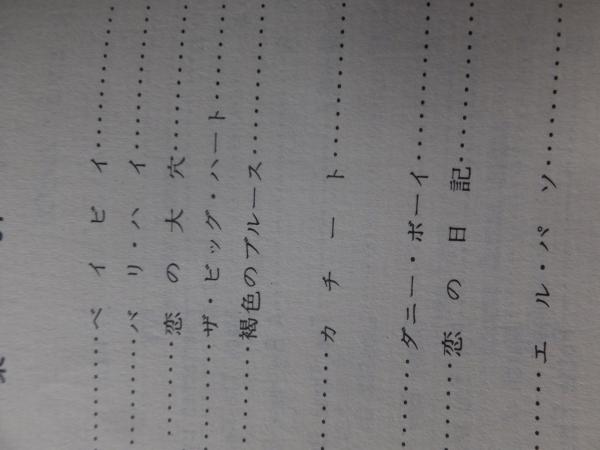 ベイビイ
バリ・ハイ
恋の大穴
ザ・ビッグ・ハート
褐色のブルース
カチート
ダニー・ボーイ
恋の日記
エル・パソ